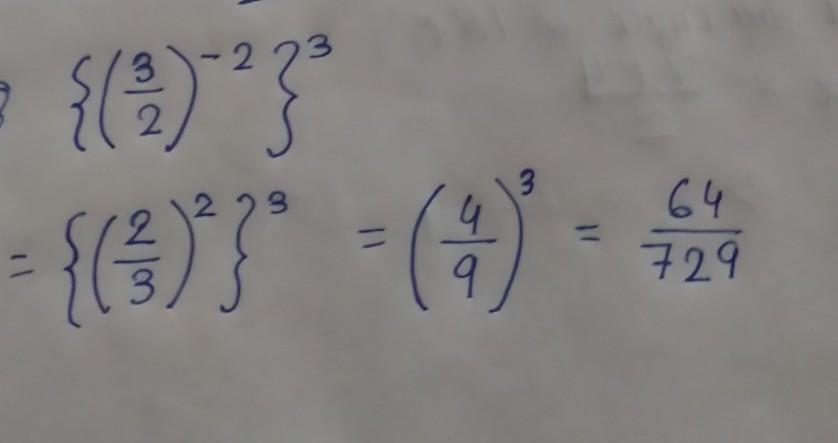 {(3/2)^-2}^3
= {(2/3)^2}^3 = (4/9)^3 = 64/729